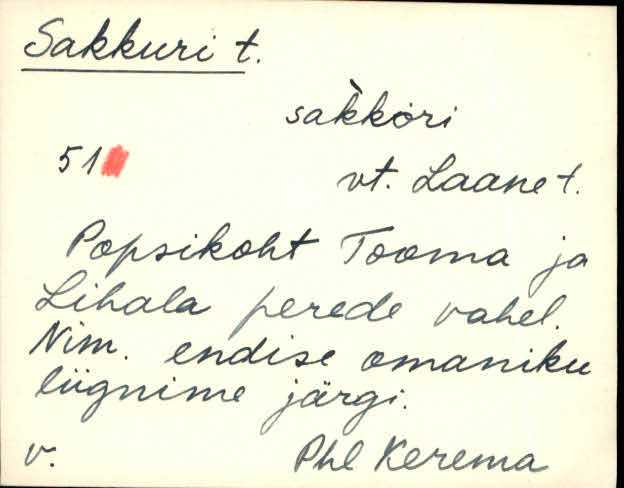 Sakkuri t.
sak̀kori
51
vt. Laane t.
Popsikoht Tooma ja
Lihala perede vahel.
Nim. endise omaniku
liignime järgi.
v. Phl Kerema